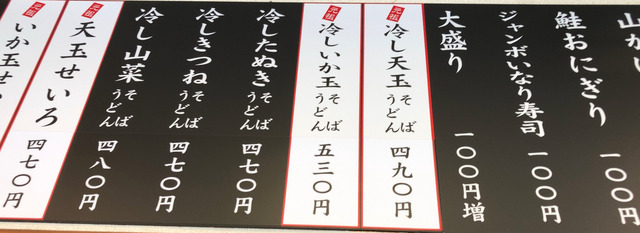 山か
一〇〇円
鮭おにぎり
一〇〇円
ジャンボいなり寿司
一〇〇円
大盛り
一〇〇円増
元祖
冷し天玉
そば
うどん
四九〇円
元祖
冷しいか玉
そば
うどん
五三〇円
冷したぬき
そば
うどん
四七〇円
冷しきつね
そば
うどん
四七〇円
冷し山菜
そば
うどん
四八〇円
元祖
天玉せいろ
四七〇円
元祖
いか玉せ
四七〇円